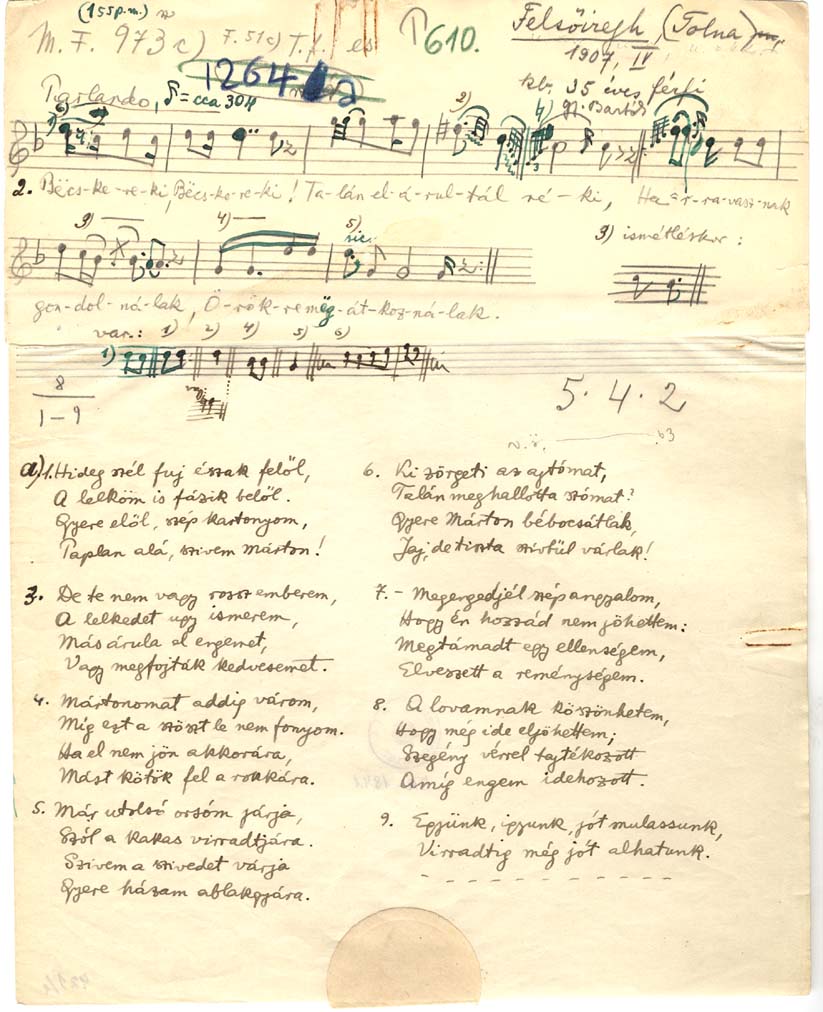 (155 p.m.)
M. F. 973 c) F. 51c) T. f. es
P 610.
Felsőiregh, (Tolna)
1907, IV
kb. 35 éves férfi
gy. Bartók
1264
Parlando, ♪ = cca 304
2. Bëcs-ke-re-ki, Bëcs-ke-re-ki! Ta-lán el-á-rul-tál ré-ki, Ha ar-ra-vasz-nak
3) 4) 5) sic
3) ismétléskor:
gon-dol-ná-lak, Ö-rök-re mëg-át-koz-ná-lak.
var.: 1) 2) 4) 5) 6)
1)
8
1-9
5. 4. 2
b3
a) 1. Hideg szél fuj észak felől,
A lelköm is fázik belől.
Gyere elől, szép kartonyom,
Paplan alá, szivem márton!
3. De te nem vagy rossz emberem,
A lelkedet ugy ismerem,
Más árula el engemet,
Vagy megfojták kedvesemet.
4. Mártonomat addig várom,
Míg ezt a szöszt le nem fonyom.
Ha el nem jön akkorára,
Mást kötök fel a rokkára.
5. Már utolsó orsóm járja,
Szól a kakas virradtjára.
Szivem a szivedet várja
Gyere házam ablakgyára.
6. Ki zörgeti az ajtómat,
Talán meghallotta szómat?
Gyere Márton bébocsátlak,
Jaj, de tiszta szívbül várlak!
7. – Megengedjél szép angyalom,
Hogy én hozzád nem jöhettem:
Megtámadt egy ellenségem,
Elveszett a reménységem.
8. A lovamnak köszönhetem,
Hogy még ide eljöhettem;
Szegény vérrel tajtékozott
Amíg engem idehozott.
9. Együnk, igyunk, jót mulassunk,
Virradtig még jót alhatunk.